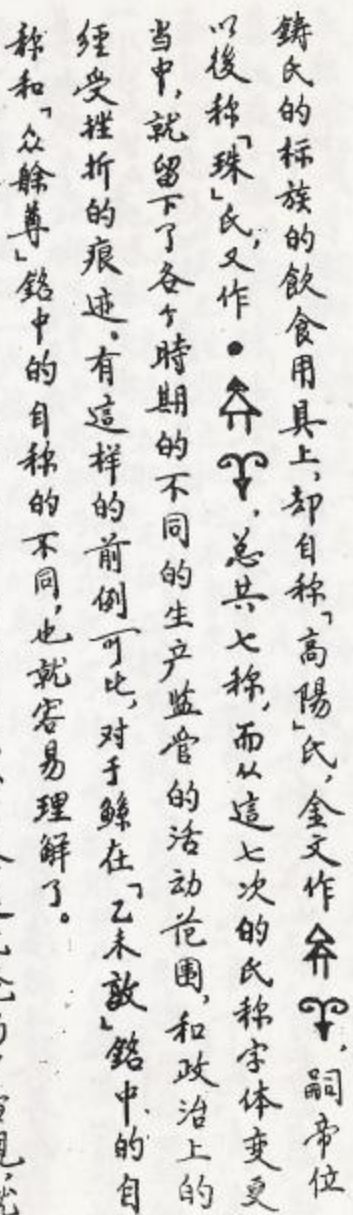 鋳氏的标族的飲食用具上，却自称「高陽」氏，金文作，嗣帝位
以後称「珠」氏，又作●，总共七称，而从這七次的氏称字体变更
当中，就留下了各个時期的不同的生产监管的活动范围，和政治上的
經受挫折的痕迹。有這样的前例可比，对于鲧在「乙未敦」銘中的自
称和「众艅尊」銘中的自称的不同，也就容易理解了。